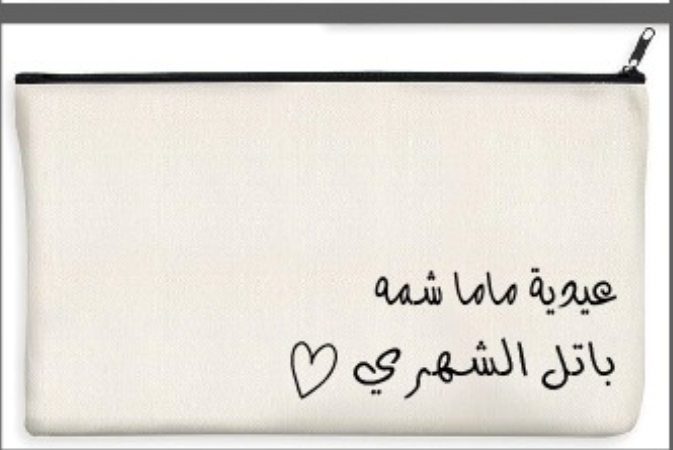 عيدية ماما شمه
باتل الشهري ♡